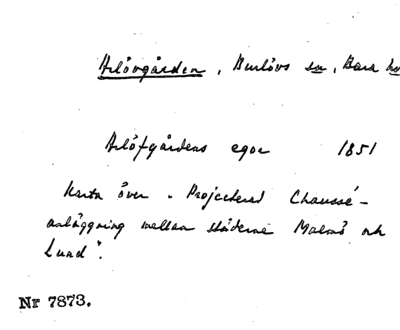 Arlövgården, Burlövs sn, Bara
Arlöfgårdens egor 1851
Karta över "Projecterad Chaussé-
anläggning mellan städerna Malmö och
Lund".
Nr 7873.